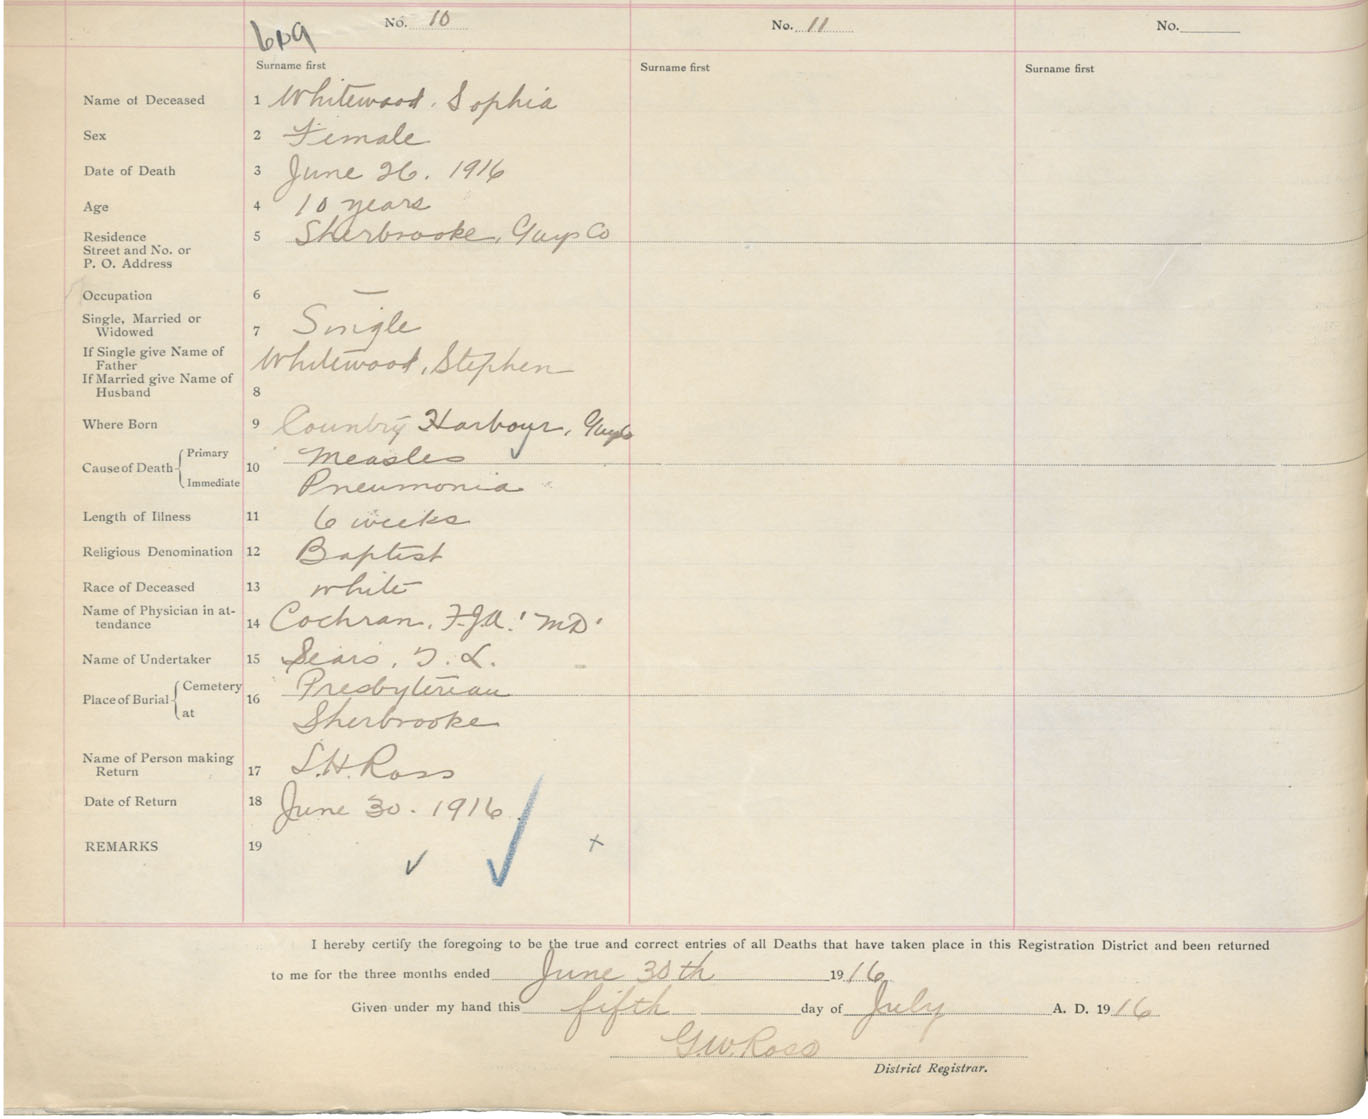 No. 10
No. 11
No.
609
Surname first
Surname first
Surname first
Name of Deceased 1 Whitewood, Sophia
Sex 2 Female
Date of Death 3 June 26. 1916
Age 4 10 years
Residence 5 Sherbrooke, Guys Co
Street and No. or
P. O. Address
Occupation 6 —
Single, Married or
Widowed 7 Single
If Single give Name of
Father Whitewood, Stephen
If Married give Name of
Husband 8
Where Born 9 Country Harbour, Guysb
Cause of Death Primary 10 Measles
Immediate Pneumonia
Length of Illness 11 6 weeks
Religious Denomination 12 Baptist
Race of Deceased 13 white
Name of Physician in at-
tendance 14 Cochran, F.J.A. 'MD'
Name of Undertaker 15 Sears, T. L.
Place of Burial Cemetery 16 Presbyterian
at Sherbrooke
Name of Person making
Return 17 S.H. Ross
Date of Return 18 June 30. 1916
REMARKS 19
I hereby certify the foregoing to be the true and correct entries of all Deaths that have taken place in this Registration District and been returned
to me for the three months ended June 30th 1916
Given under my hand this fifth day of July A. D. 1916
G.W. Ross
District Registrar.